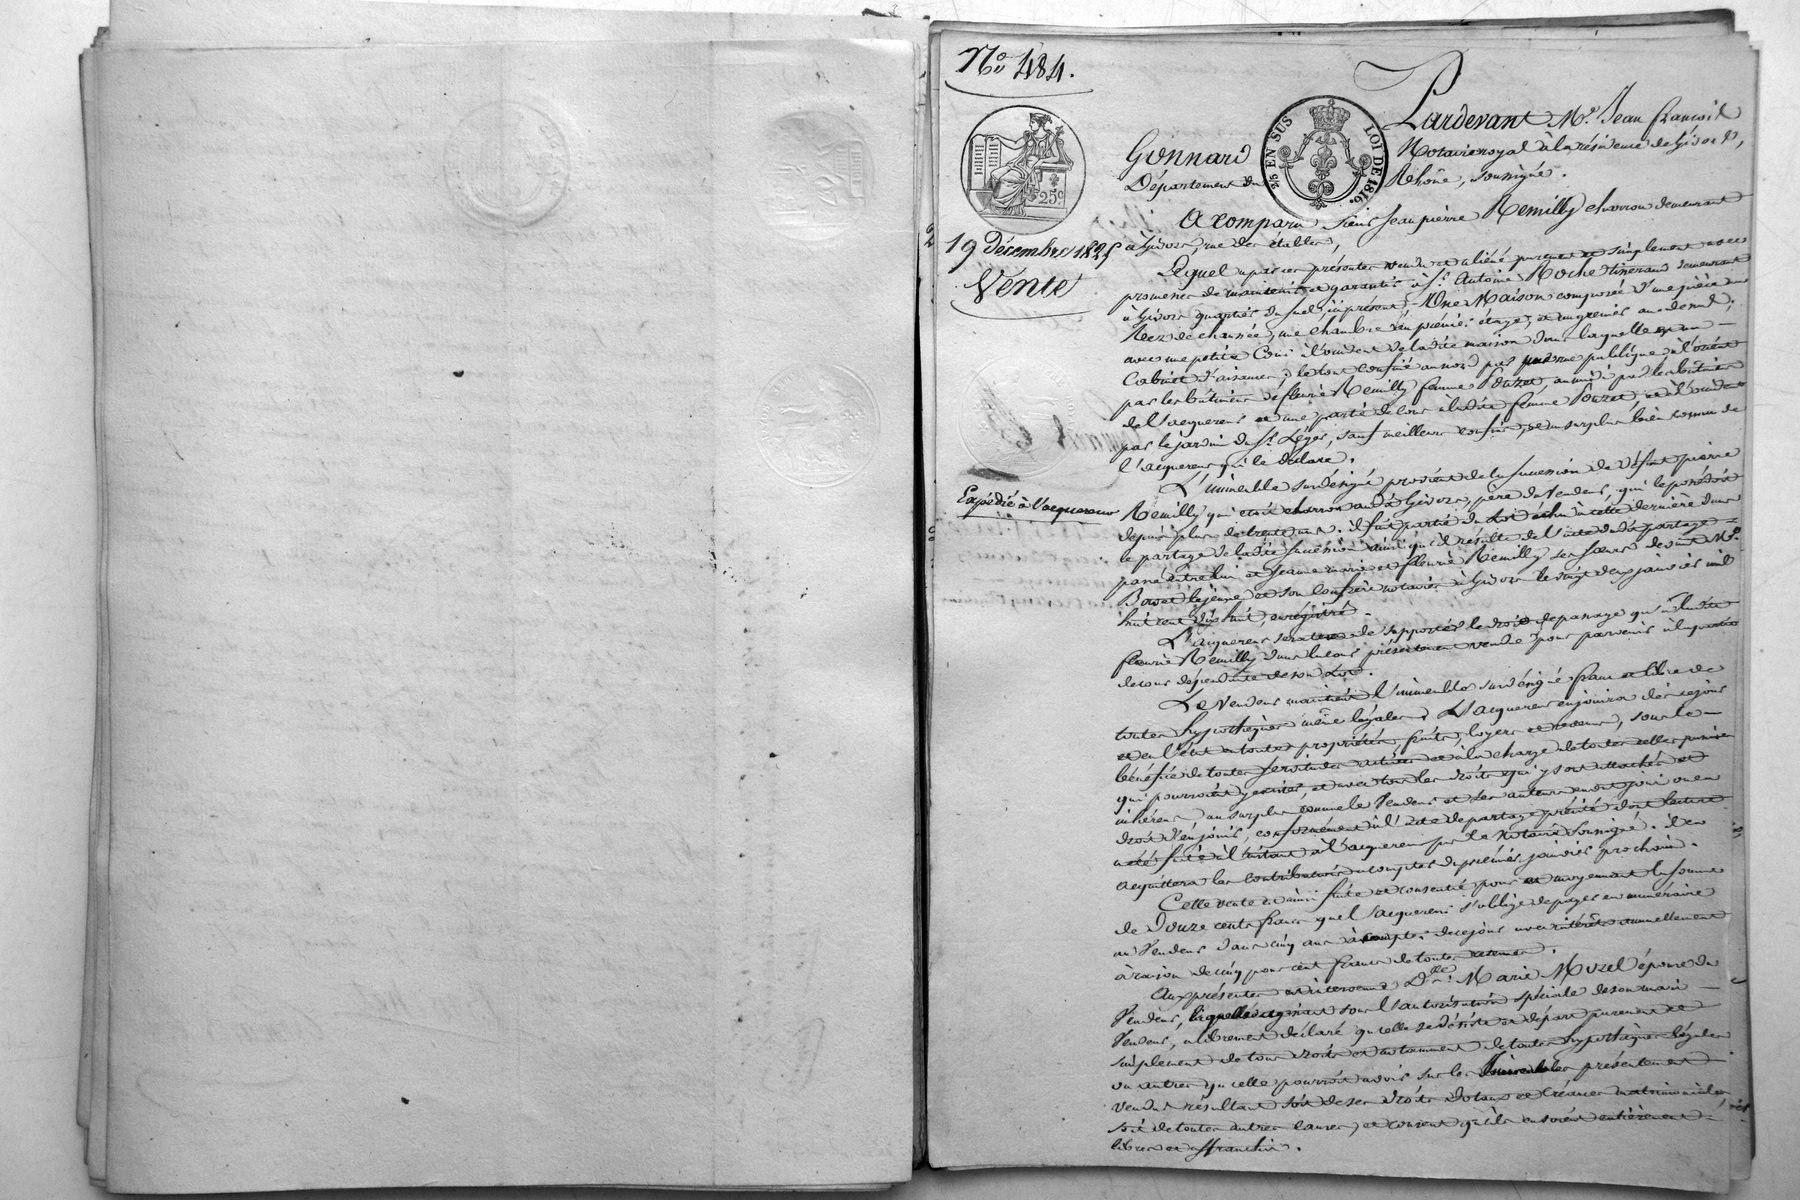 No. 484.
25c
25 EN SUS
LOI DE 1816.
19 décembre 1825
Vente
Expédié à l'acquereur
Pardevant Me. Jean François
Gonnard Notaire royal à la résidence de Givors,
Département du Rhône, soussigné.
A comparu sieur Jean pierre Remilly charron demeurant
à Givors, rue des étables,
Lequel a par ces présentes vendu et aliéné purement et simplement avec
promesse de maintenir et garantir à Sr. Antoine Roche demeurant
à Givors quartier du suel, ici présent; Une Maison composée d'une pièce au
Rez de chaussée, une chambre au premier étage, et un grenier au dessus,
avec une petite Cour à l'occident de la dite maison dans laquelle est un
Cabinet d'aisances; le tout confiné au nord par rue publique, à l'orient
par les bâtiments de fleurie Remilly femme Douzet, au midi par les bâtiments
de l'acquereur et une partie de cour à la dite femme Douzet, et à l'occident
par le jardin du Sr. Léger, sauf meilleurs confins, et au surplus bien connu de
l'acquereur qui le déclare.
L'immeuble susdésigné provient de la succession de défunt pierre
Remilly qui étoit charron audit Givors, père du Vendeur, qui le possédoit
depuis plus de trente ans. il fait partie du lot échu à cette dernière dans
le partage de la dite succession ainsi qu'il résulte de l'acte dudit partage
passé entre lui et Jeanne marie et fleurie Remilly ses sœurs devant Me.
Bovet lejeune et son confrère notaires à Givors le vingt deux janvier mil
huit cent dix huit, enregistré.
L'acquereur sera tenu de supporter le droit de passage qu'a ladite
fleurie Remilly dans la cour présentement vendue pour parvenir à la partie
de cour dépendante de son Lot.
Le Vendeur maintient l'immeuble susdésigné franc et libre de
toutes hypothèques même légales; L'acquereur en jouira dès ce jour
et en l'état en toute propriété, fruits, loyers et revenus, sous le
bénéfice de toutes servitudes actives et à la charge de toutes celles passives
qui pourroient y exister, et avec tous les droits qui y sont attachés et
inhérens, au surplus comme le Vendeur et ses auteurs en ont joui ou eu
droit d'en jouir, conformément à l'acte de partage précité dont lecture
a été faite à l'instant à l'acquereur par le Notaire soussigné. il en
acquittera les contributions à compter du premier janvier prochain.
Cette vente est ainsi faite et consentie pour et moyennant la somme
de Douze cents francs que l'acquereur s'oblige de payer en numéraire
au Vendeur dans cinq ans à compter de ce jour avec intérêts annuellement
à raison de cinq pour cent francs de toute retenue.
Aux présentes est intervenue Dlle. Marie Mozel épouse du
Vendeur, laquelle agissant sous l'autorisation spéciale de son mari
Vendeur, a librement déclaré qu'elle se désiste et départ purement et
simplement de tous droits et notamment de toutes hypothèques légales
ou autres qu'elle pourroit avoir sur les immeubles présentement
vendus résultant soit de ses droits dotaux et Créances matrimoniales,
soit de toutes autres causes, et consent qu'ils en soient entièrement
libres et affranchis.